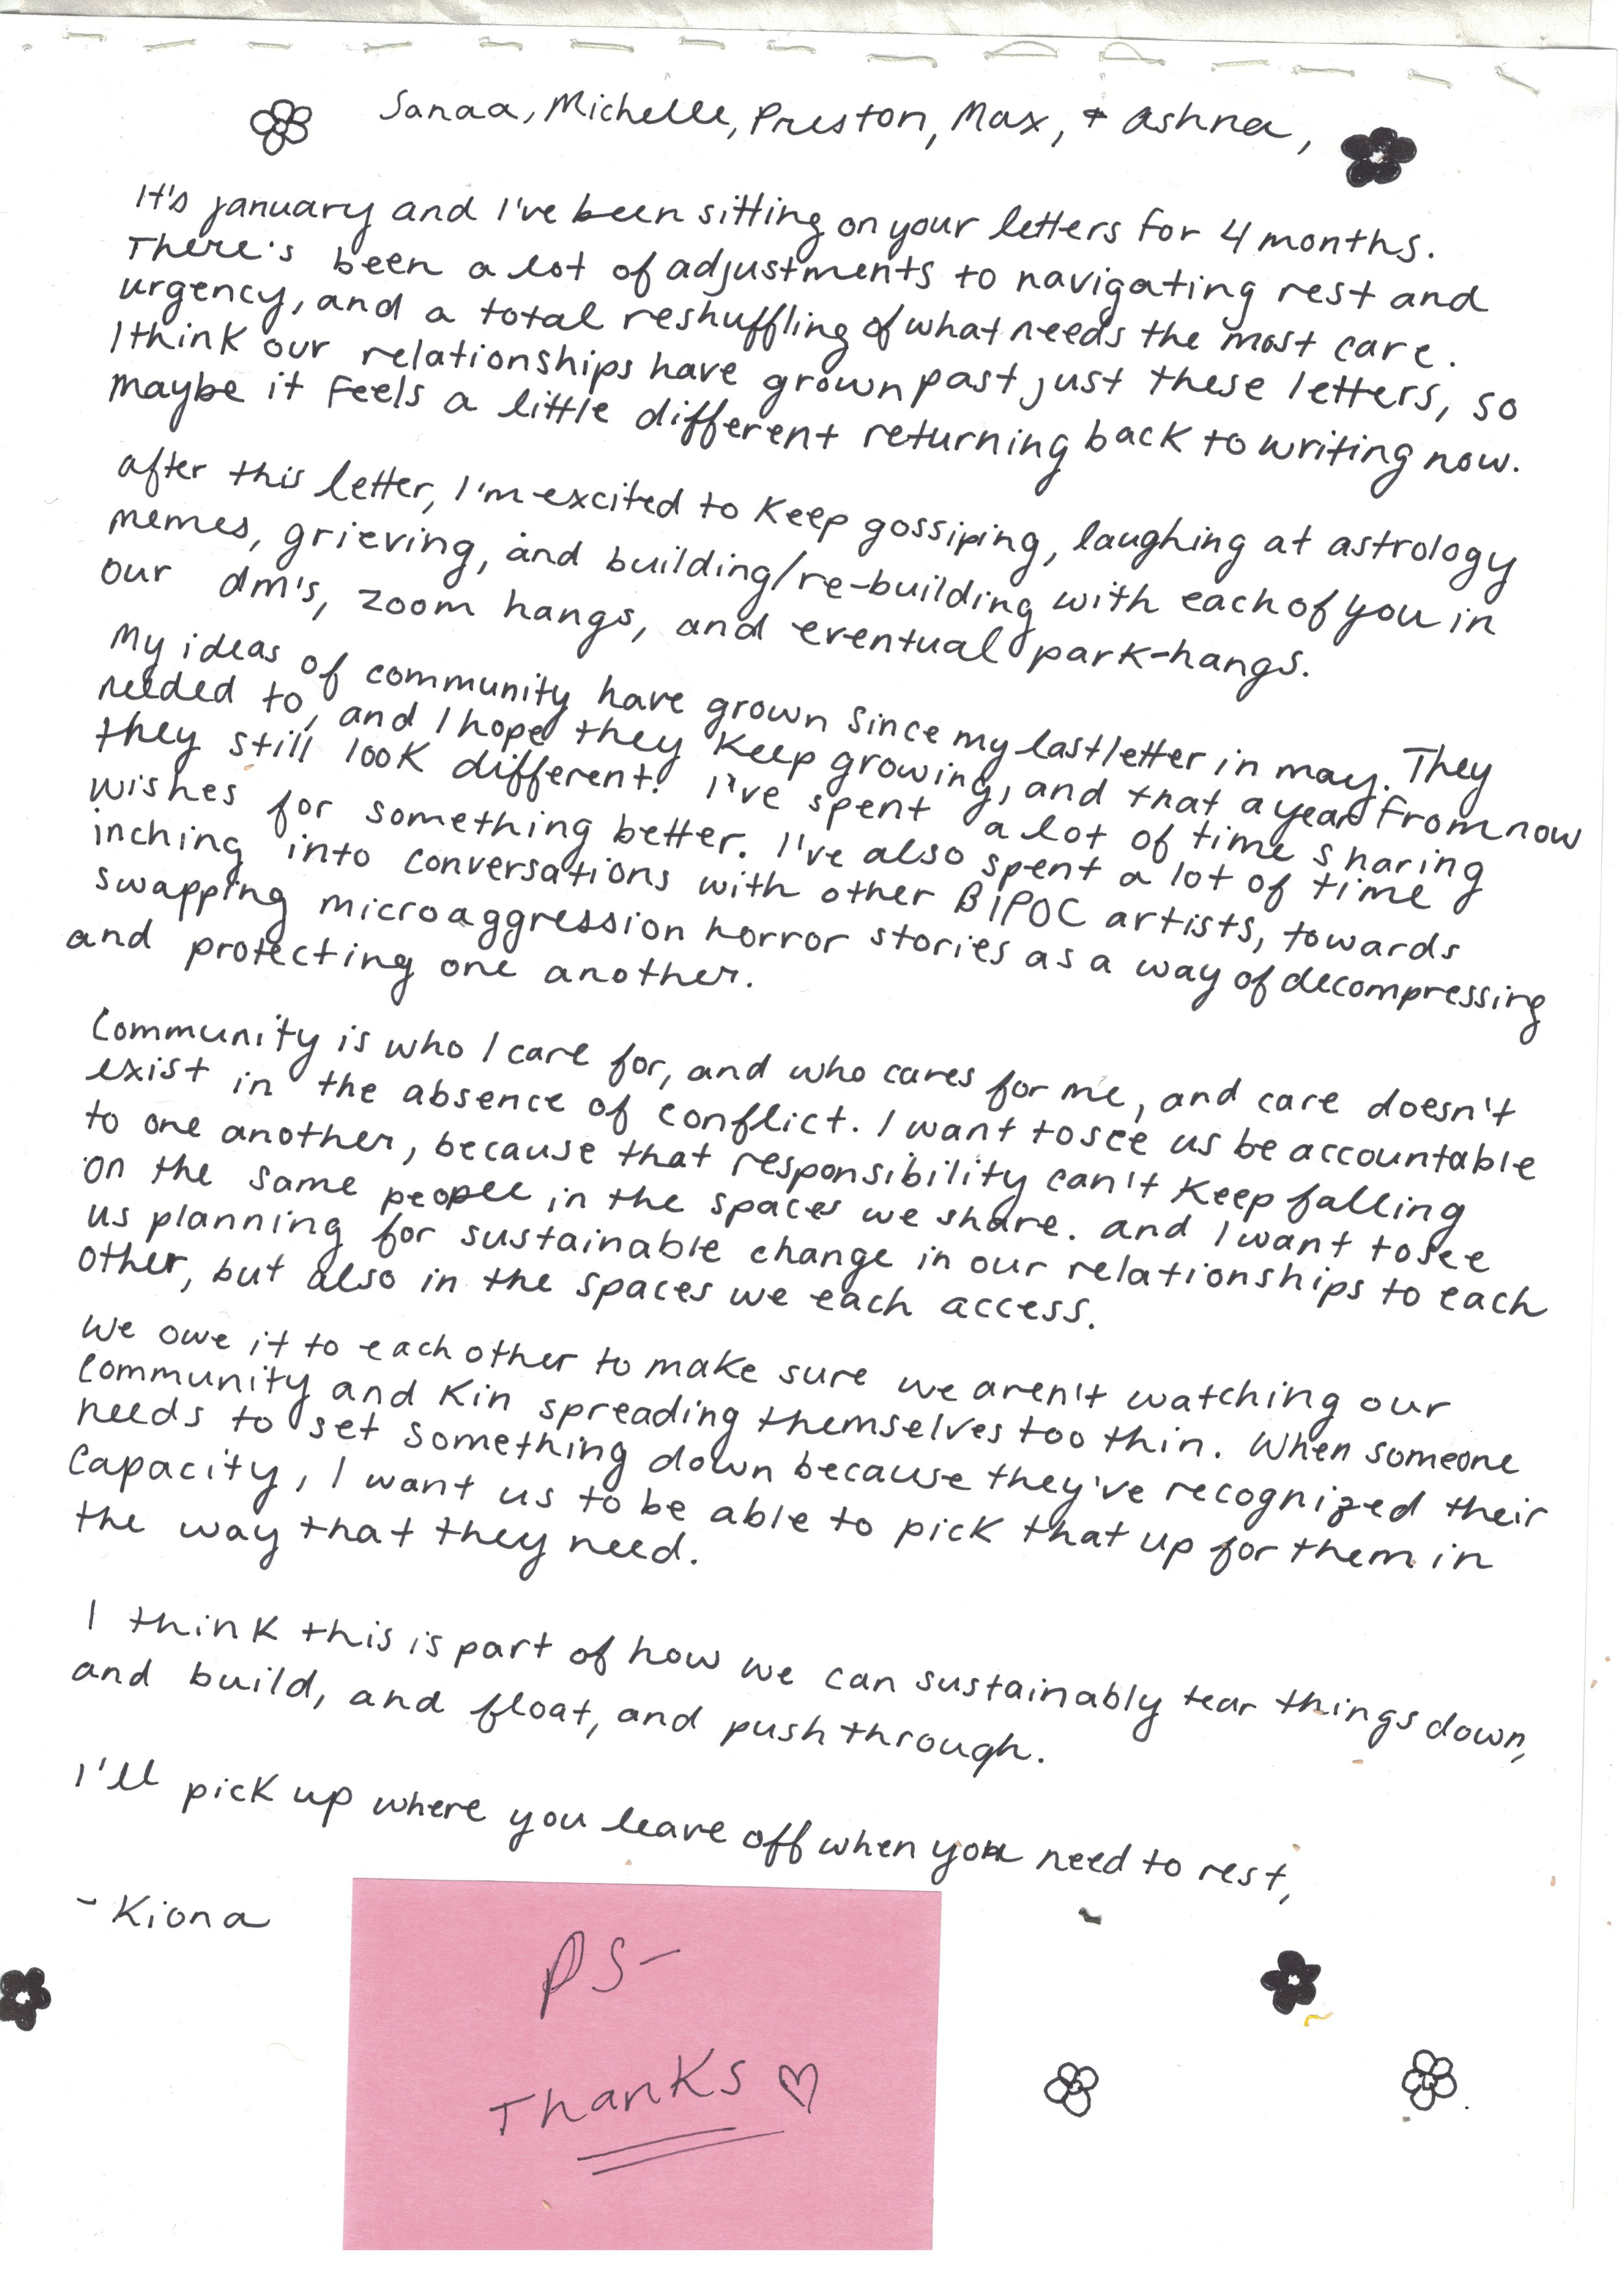 Sanaa, Michelle, Preston, Max, + Ashna,
It's january and I've been sitting on your letters for 4 months.
There's been a lot of adjustments to navigating rest and
urgency, and a total reshuffling of what needs the most care.
I think our relationships have grown past just these letters, so
maybe it feels a little different returning back to writing now.
after this letter, I'm excited to keep gossiping, laughing at astrology
memes, grieving, and building/re-building with each of you in
our dm's, zoom hangs, and eventual park-hangs.
My ideas of community have grown since my last letter in may. They
needed to, and I hope they keep growing, and that a year from now
they still look different. I've spent a lot of time sharing
wishes for something better. I've also spent a lot of time
inching into conversations with other BIPOC artists, towards
swapping microaggression horror stories as a way of decompressing
and protecting one another.
Community is who I care for, and who cares for me, and care doesn't
exist in the absence of conflict. I want to see us be accountable
to one another, because that responsibility can't keep falling
on the same people in the spaces we share. and I want to see
us planning for sustainable change in our relationships to each
other, but also in the spaces we each access.
We owe it to each other to make sure we aren't watching our
community and kin spreading themselves too thin. When someone
needs to set something down because they've recognized their
capacity, I want us to be able to pick that up for them in
the way that they need.
I think this is part of how we can sustainably tear things down,
and build, and float, and push through.
I'll pick up where you leave off when you need to rest,
- Kiona
PS-
Thanks ♡